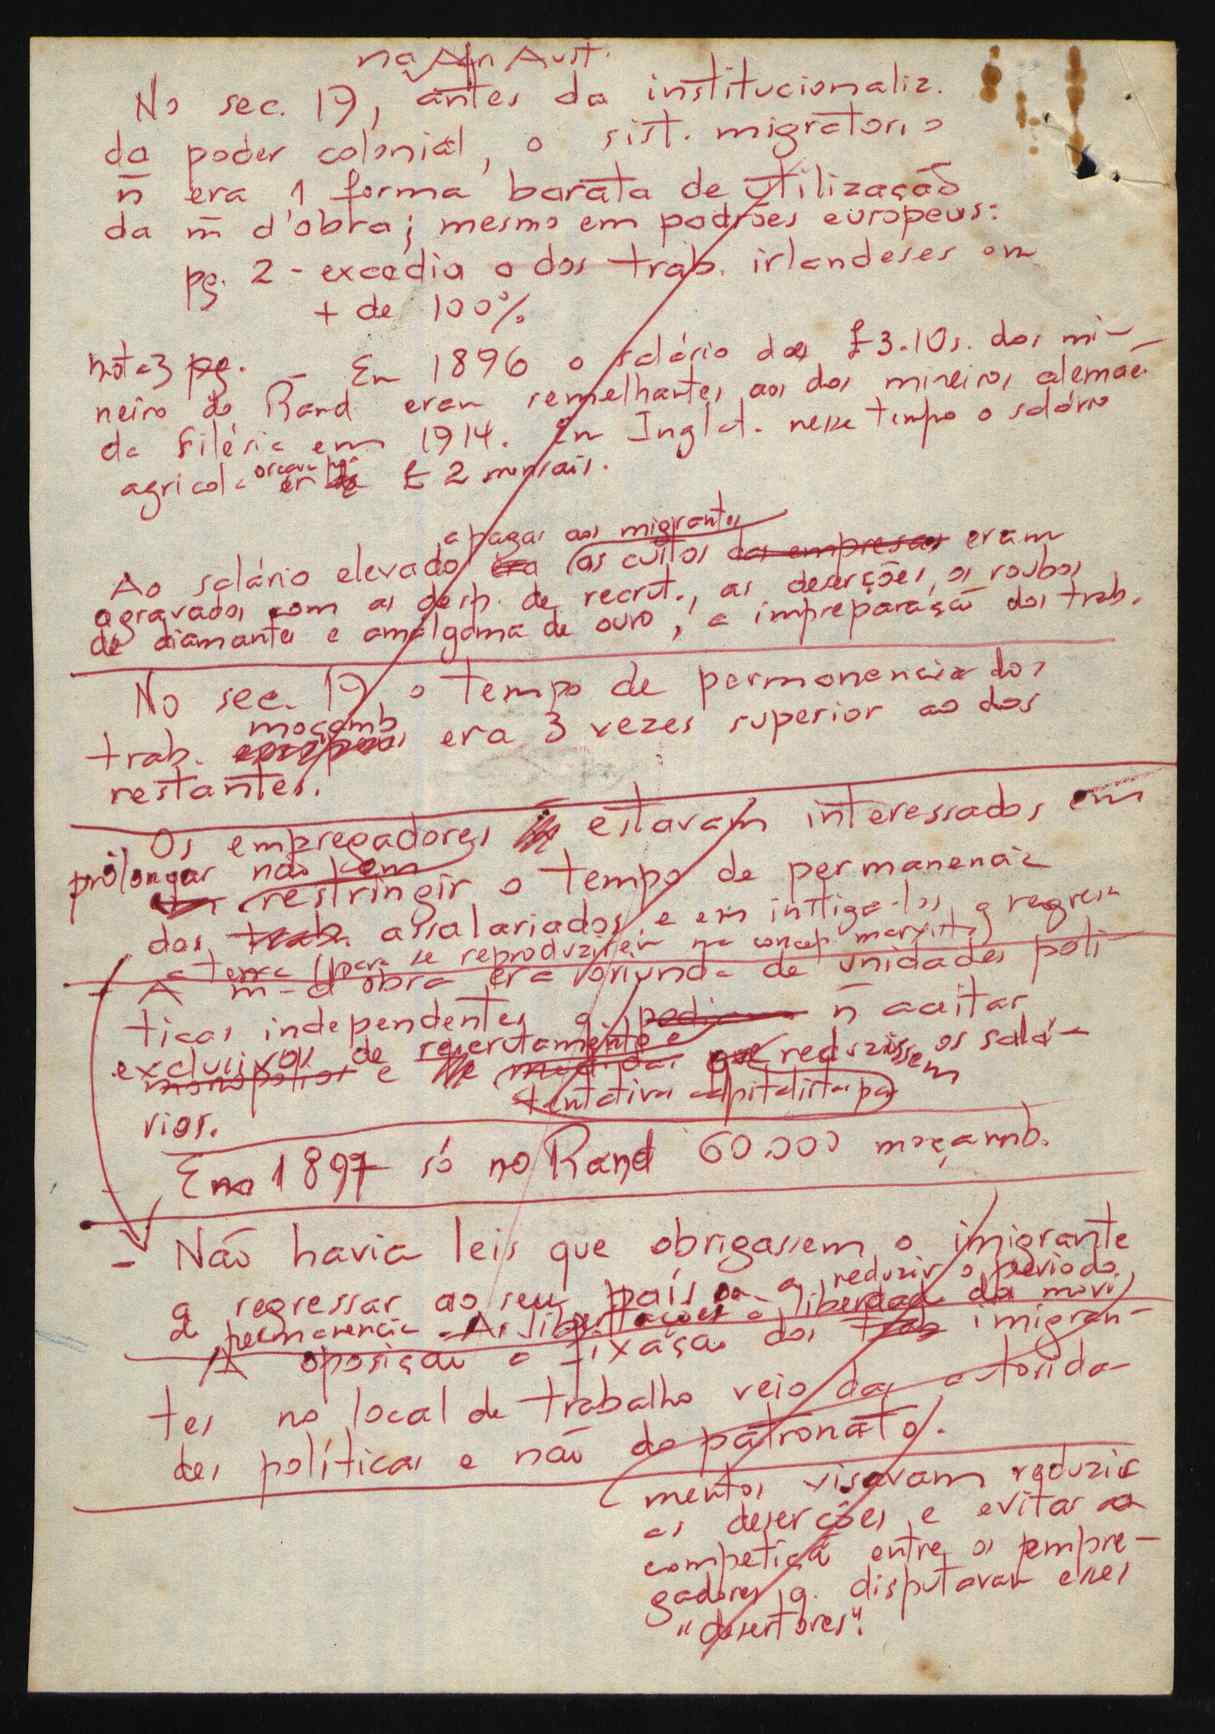 na Afr Aust.
No sec. 19, antes da institucionaliz.
do poder colonial, o sist. migratorio
ñ era 1 forma barata de utilização
da m̄ d'obra; mesmo em padrões europeus:
pg. 2 - excedia o dos trab. irlandeses em
+ de 100%
nota 3 pg. - Em 1896 o salário dos £3.10s. dos mi-
neiro do Rand eram semelhantes aos dos mineiros alemãe
da Silésia em 1914. Em Inglat. nesse tempo o salário
agricola orçava £ 2 mensais.
a pagar aos migrantes
Ao salário elevado era os custos das empresas eram
agravados com as desp. de recrut., as deserções, os roubos
de diamante e amalgama de ouro, a impreparação dos trab.
No sec. 19 o tempo de permanencia dos
moçamb
trab. era 3 vezes superior ao dos
restantes.
Os empregadores estavam interessados em
prolongar não em
restringir o tempo de permanencia
dos trab. assalariados e em instiga-los a regress
a terra (para se reproduzirem na concep. marxista)
A m-d'obra era oriunda de unidades poli
ticas independentes q. podiam ñ aceitar
exclusivos de recrutamento e
monopolios e medidas que reduzissem os salá-
tentativa capitalista pa
rios.
Em 1897 só no Rand 60.000 moçamb.
- Não havia leis que obrigassem o imigrante
a regressar ao seu país ou a reduzir o periodo
d permanencia - As libertações a liberdade da movi
A oposição a fixação dos trab imigran-
tes no local de trabalho veio das autorida-
des políticas e não do patronato.
mentos visavam reduzir
as deserções e evitar a
competiçã entre os empre-
gadores q. disputavam esses
"desertores".